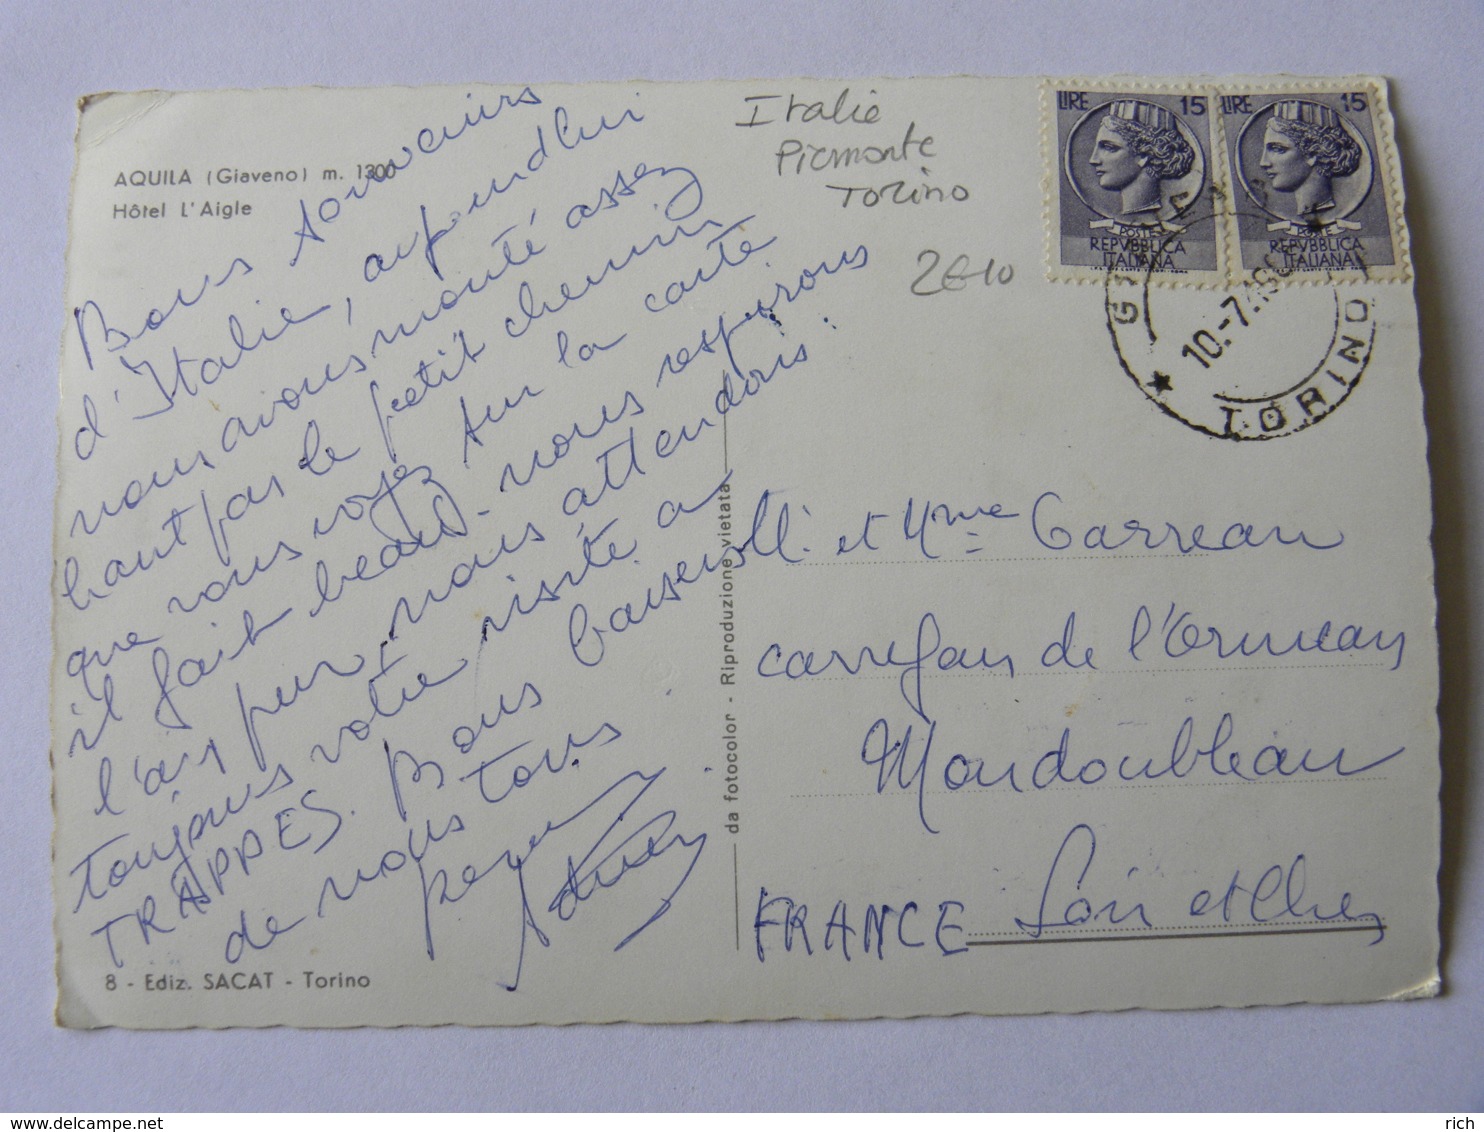 AQUILA (Giaveno) m. 1300
Hôtel L'Aigle
Bons souvenirs
d'Italie, aujourd'hui
nous avons monté assez
haut par le petit chemin
que vous voyez sur la carte
il fait beau - nous respirons
l'air pur, nous attendons
toujours votre visite à
TRAPPES. Bons baisers
de nous tous
8 - Ediz. SACAT - Torino
da fotocolor - Riproduzione vietata
Italie
Piemonte
Torino
2€10
LIRE 15
POSTE
REPVBBLICA
ITALIANA
LIRE 15
POSTE
REPVBBLICA
ITALIANA
10.-7.
TORINO
et Mme Garreau
carrefour de l'Ormeau
Mondoubleau
FRANCE Loir et Cher
delcampe.net
rich